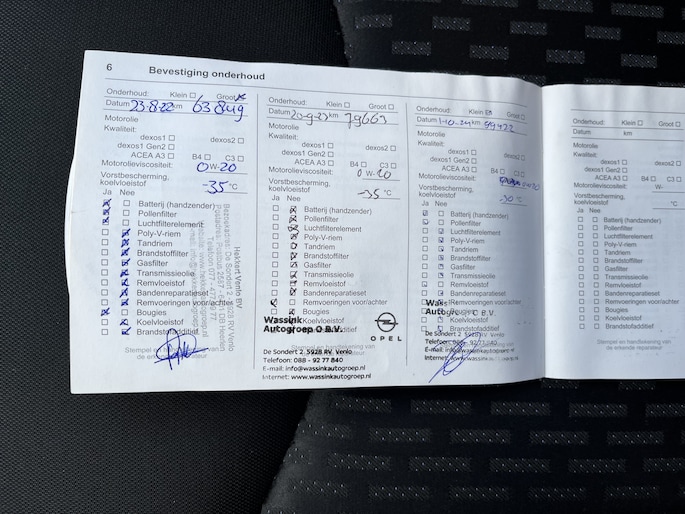 6 Bevestiging onderhoud
Onderhoud: Klein Groot
Datum 23-8-22 km 63849
Motorolie
Kwaliteit:
dexos1 dexos2
dexos1 Gen2
ACEA A3 B4 C3
Motorolieviscositeit: 0W-20
Vorstbescherming,
koelvloeistof -35 °C
Ja Nee
Batterij (handzender)
Pollenfilter
Luchtfilterelement
Poly-V-riem
Tandriem
Brandstoffilter
Gasfilter
Transmissieolie
Remvloeistof
Bandenreparatieset
Remvoeringen voor/achter
Bougies
Koelvloeistof
Brandstofadditief
Stempel en handtekening van
de erkende reparateur
Hekkert Venlo BV
Onderhoud: Klein Groot
Datum 20-9-23 km 79663
Motorolie
Kwaliteit:
dexos1 dexos2
dexos1 Gen2
ACEA A3 B4 C3
Motorolieviscositeit: 0W-20
Vorstbescherming,
koelvloeistof -35 °C
Ja Nee
Batterij (handzender)
Pollenfilter
Luchtfilterelement
Poly-V-riem
Tandriem
Brandstoffilter
Gasfilter
Transmissieolie
Remvloeistof
Bandenreparatieset
Remvoeringen voor/achter
Bougies
Koelvloeistof
Wassink
Autogroep O B.V.
OPEL
De Sondert 2, 5928 RV, Venlo
Telefoon: 088 - 92 77 840
E-mail: info@wassinkautogroep.nl
Internet: www.wassinkautogroep.nl
Onderhoud: Klein Groot
Datum 1-10-24 km
Motorolie
Kwaliteit:
dexos1 dexos2
dexos1 Gen2
ACEA A3 B4 C3
Motorolieviscositeit:
Vorstbescherming,
koelvloeistof -30 °C
Ja Nee
Batterij (handzender)
Pollenfilter
Luchtfilterelement
Poly-V-riem
Tandriem
Brandstoffilter
Gasfilter
Transmissieolie
Remvloeistof
Bandenreparatieset
Remvoeringen voor/achter
Bougies
Koelvloeistof
Brandstofadditief
De Sondert 2, 5928 RV, Venlo
Telefoon: 088 - 92 77 840
E-mail: info@wassinkautogroep.nl
Internet: www.wassinkautogroep.nl
Onderhoud: Klein Groot
Datum km
Motorolie
Kwaliteit:
dexos1 dexos2
dexos1 Gen2
ACEA A3 B4 C3
Motorolieviscositeit: W-
Vorstbescherming,
koelvloeistof °C
Ja Nee
Batterij (handzender)
Pollenfilter
Luchtfilterelement
Poly-V-riem
Tandriem
Brandstoffilter
Gasfilter
Transmissieolie
Remvloeistof
Bandenreparatieset
Remvoeringen voor/achter
Bougies
Koelvloeistof
Brandstofadditief
Stempel en handtekening van
de erkende reparateur